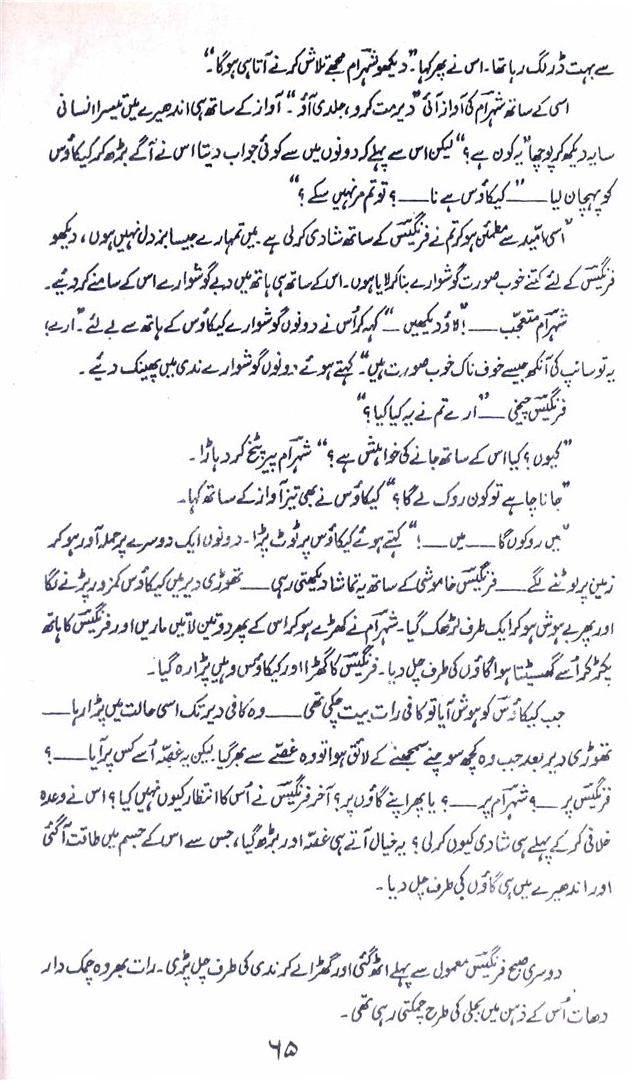 سے بہت ڈر لگ رہا تھا۔ اس نے پھر کہا۔ "دیکھو شہرام مجھے تلاش کرنے آتا ہی ہوگا۔"
اسی کے ساتھ شہرام کی آواز آئی "دیر مت کرو، جلدی آؤ۔" آواز کے ساتھ ہی اندھیرے میں تیسرا انسانی
سایہ دیکھ کر پوچھا "یہ کون ہے؟" لیکن اس سے پہلے کہ دونوں میں سے کوئی جواب دیتا اس نے آگے بڑھ کر کیکاؤس
کو پہچان لیا ــــ "کیکاؤس ہے نا ــــ؟ تو تم مر نہیں سکے؟"
"اسی امید سے مطمئن ہو کر تم نے فرنگیس کے ساتھ شادی کر لی ہے۔ میں تمہارے جیسا بزدل نہیں ہوں، دیکھو
فرنگیس کے لئے کتنے خوب صورت گوشوارے بنا کر لایا ہوں۔ اس کے ساتھ ہی ہاتھ میں دبے گوشوارے اس کے سامنے کر دیے۔
شہرام متعجب ــــ! "لاؤ دیکھیں ــ" کہہ کر اُس نے دونوں گوشوارے کیکاؤس کے ہاتھ سے لے لئے۔ "ارے!
یہ تو سانپ کی آنکھ جیسے خوف ناک خوب صورت ہیں۔" کہتے ہوئے دونوں گوشوارے ندی میں پھینک دئیے۔
فرنگیس چیخی ــــ "ارے تم نے یہ کیا کیا؟"
"کیوں؟ کیا اس کے ساتھ جانے کی خواہش ہے؟" شہرام پیر پٹخ کر دہاڑا۔
"جانا چاہے تو کون روک لے گا؟" کیکاؤس نے بھی تیز آواز کے ساتھ کہا۔
"میں روکوں گا ــــ میں ــــ!" کہتے ہوئے کیکاؤس پر ٹوٹ پڑا۔ دونوں ایک دوسرے پر حملہ آور ہو کر
زمین پر لوٹنے لگے ــــ فرنگیس خاموشی کے ساتھ یہ تماشا دیکھتی رہی ــــ تھوڑی دیر میں کیکاؤس کمزور پڑنے لگا
اور پھر بے ہوش ہو کر ایک طرف لڑھک گیا۔ شہرام نے کھڑے ہو کر اس کے پھر دو تین لاتیں ماریں اور فرنگیس کا ہاتھ
پکڑ کر اُسے گھسیٹتا ہوا گاؤں کی طرف چل دیا۔ فرنگیس کا گھڑا اور کیکاؤس وہیں پڑا رہ گیا۔
جب کیکاؤس کو ہوش آیا تو کافی رات بیت چکی تھی ــــ وہ کافی دیر تک اسی حالت میں پڑا رہا ــــ
تھوڑی دیر بعد جب وہ کچھ سوچنے سمجھنے کے لائق ہوا تو وہ غصے سے بھر گیا لیکن یہ غصہ اُسے کس پر آیا ــــ؟
فرنگیس پر ــــ؟ شہرام پر ــــ؟ یا پھر اپنے گاؤں پر؟ آخر فرنگیس نے اُس کا انتظار کیوں نہیں کیا؟ اس نے وعدہ
خلافی کر کے پہلے ہی شادی کیوں کر لی؟ یہ خیال آتے ہی غصہ اور بڑھ گیا، جس سے اس کے جسم میں طاقت آ گئی
اور اندھیرے میں ہی گاؤں کی طرف چل دیا۔
دوسری صبح فرنگیس معمول سے پہلے اٹھ گئی اور گھڑا لے کر ندی کی طرف چل پڑی۔ رات بھر وہ چمک دار
دھات اُس کے ذہن میں بجلی کی طرح چمکتی رہی تھی۔
۶۵